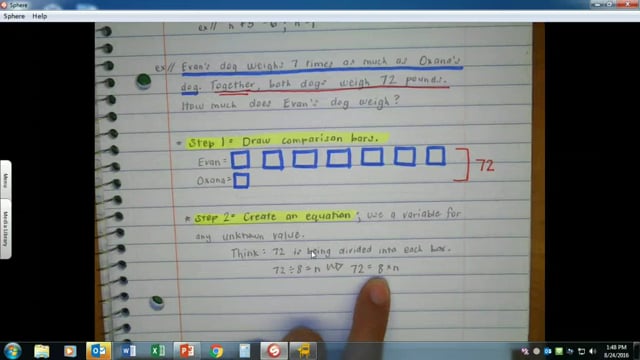 Sphere
Sphere Help
ex// n + 5 - 6 ; n - 1
ex// Evan's dog weighs 7 times as much as Oxana's
dog. Together, both dogs weigh 72 pounds.
How much does Evan's dog weigh?
* Step 1= Draw comparison bars.
Evan=
Oxana=
72
* Step 2= Create an equation; use a variable for
any unknown value.
Think: 72 is being divided into each bar.
72 ÷ 8 = n 72 = 8 × n
Menu
Media Library
1:48 PM
8/24/2016